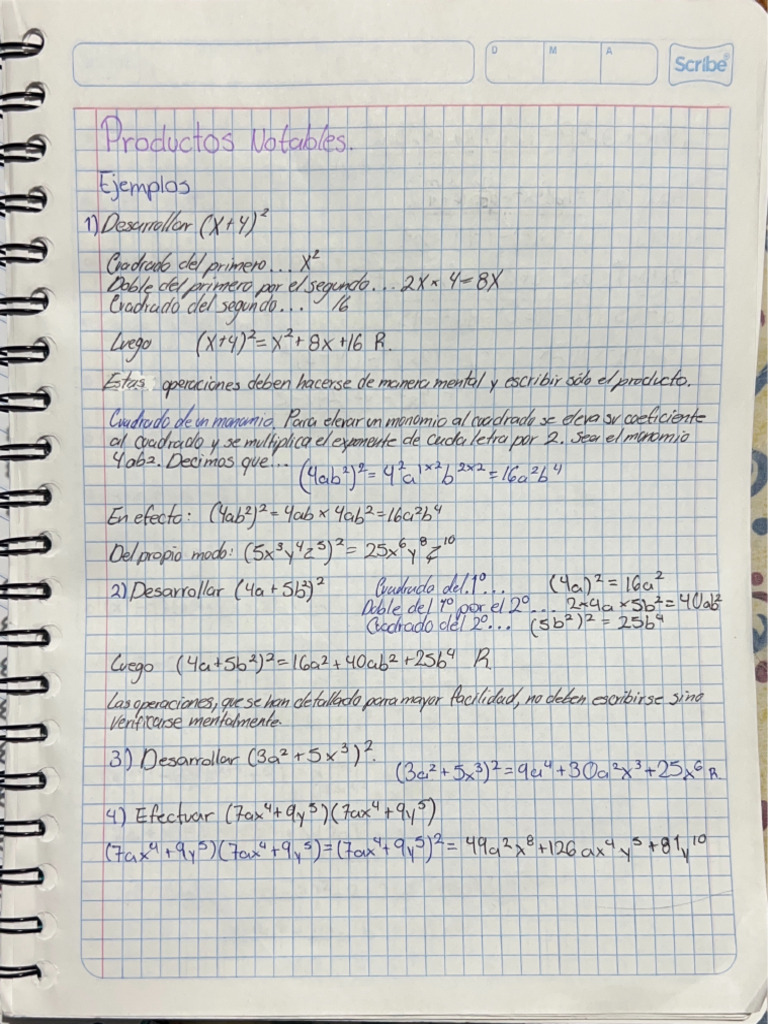 D M A Scribe®
Productos Notables.
Ejemplos
1) Desarrollar (x+4)²
Cuadrado del primero... x²
Doble del primero por el segundo... 2x × 4 = 8x
Cuadrado del segundo... 16
Luego (x+4)² = x² + 8x + 16 R.
Estas operaciones deben hacerse de manera mental y escribir sólo el producto.
Cuadrado de un monomio. Para elevar un monomio al cuadrado se eleva su coeficiente
al cuadrado y se multiplica el exponente de cada letra por 2. Sea el monomio
4ab2. Decimos que... (4ab²)² = 4²a¹ˣ²b²ˣ² = 16a²b⁴
En efecto: (4ab²)² = 4ab × 4ab² = 16a²b⁴
Del propio modo: (5x³y⁴z⁵)² = 25x⁶y⁸z¹⁰
2) Desarrollar (4a+5b²)² Cuadrado del 1º... (4a)² = 16a²
Doble del 1º por el 2º... 2×4a×5b² = 40ab²
Cuadrado del 2º... (5b²)² = 25b⁴
Luego (4a+5b²)² = 16a² + 40ab² + 25b⁴ R.
Las operaciones, que se han detallado para mayor facilidad, no deben escribirse sino
verificarse mentalmente.
3) Desarrollar (3a² + 5x³)².
(3a² + 5x³)² = 9a⁴ + 30a²x³ + 25x⁶ R
4) Efectuar (7ax⁴+9y⁵)(7ax⁴+9y⁵)
(7ax⁴+9y⁵)(7ax⁴+9y⁵) = (7ax⁴+9y⁵)² = 49a²x⁸ + 126ax⁴y⁵ + 81y¹⁰